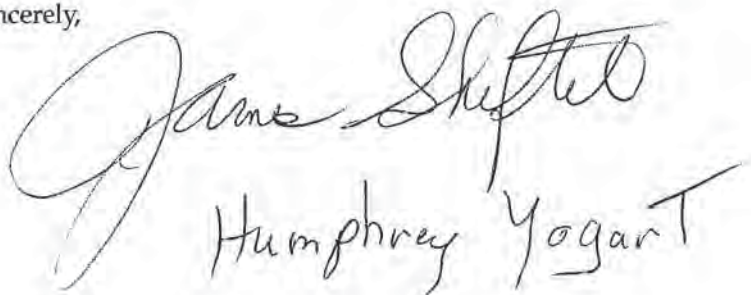 ncerely,
James Sheftel
Humphrey Yogart